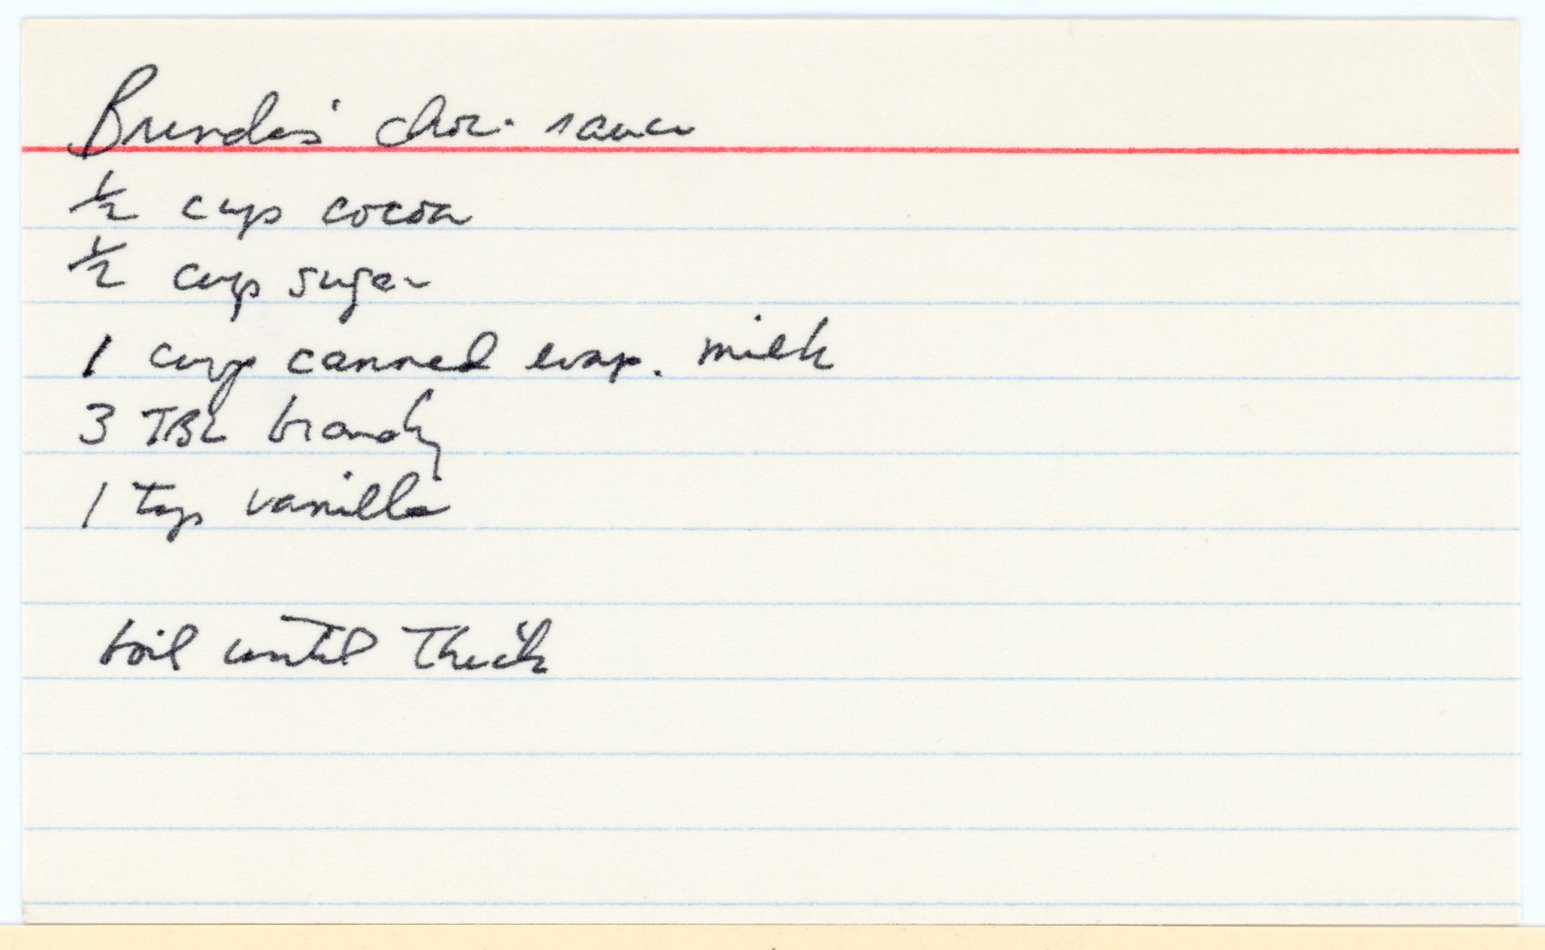 Brenda's choc. sauce
1/2 cup cocoa
1/2 cup sugar
1 cup canned evap. milk
3 TBL brandy
1 tsp vanilla
boil until Thick